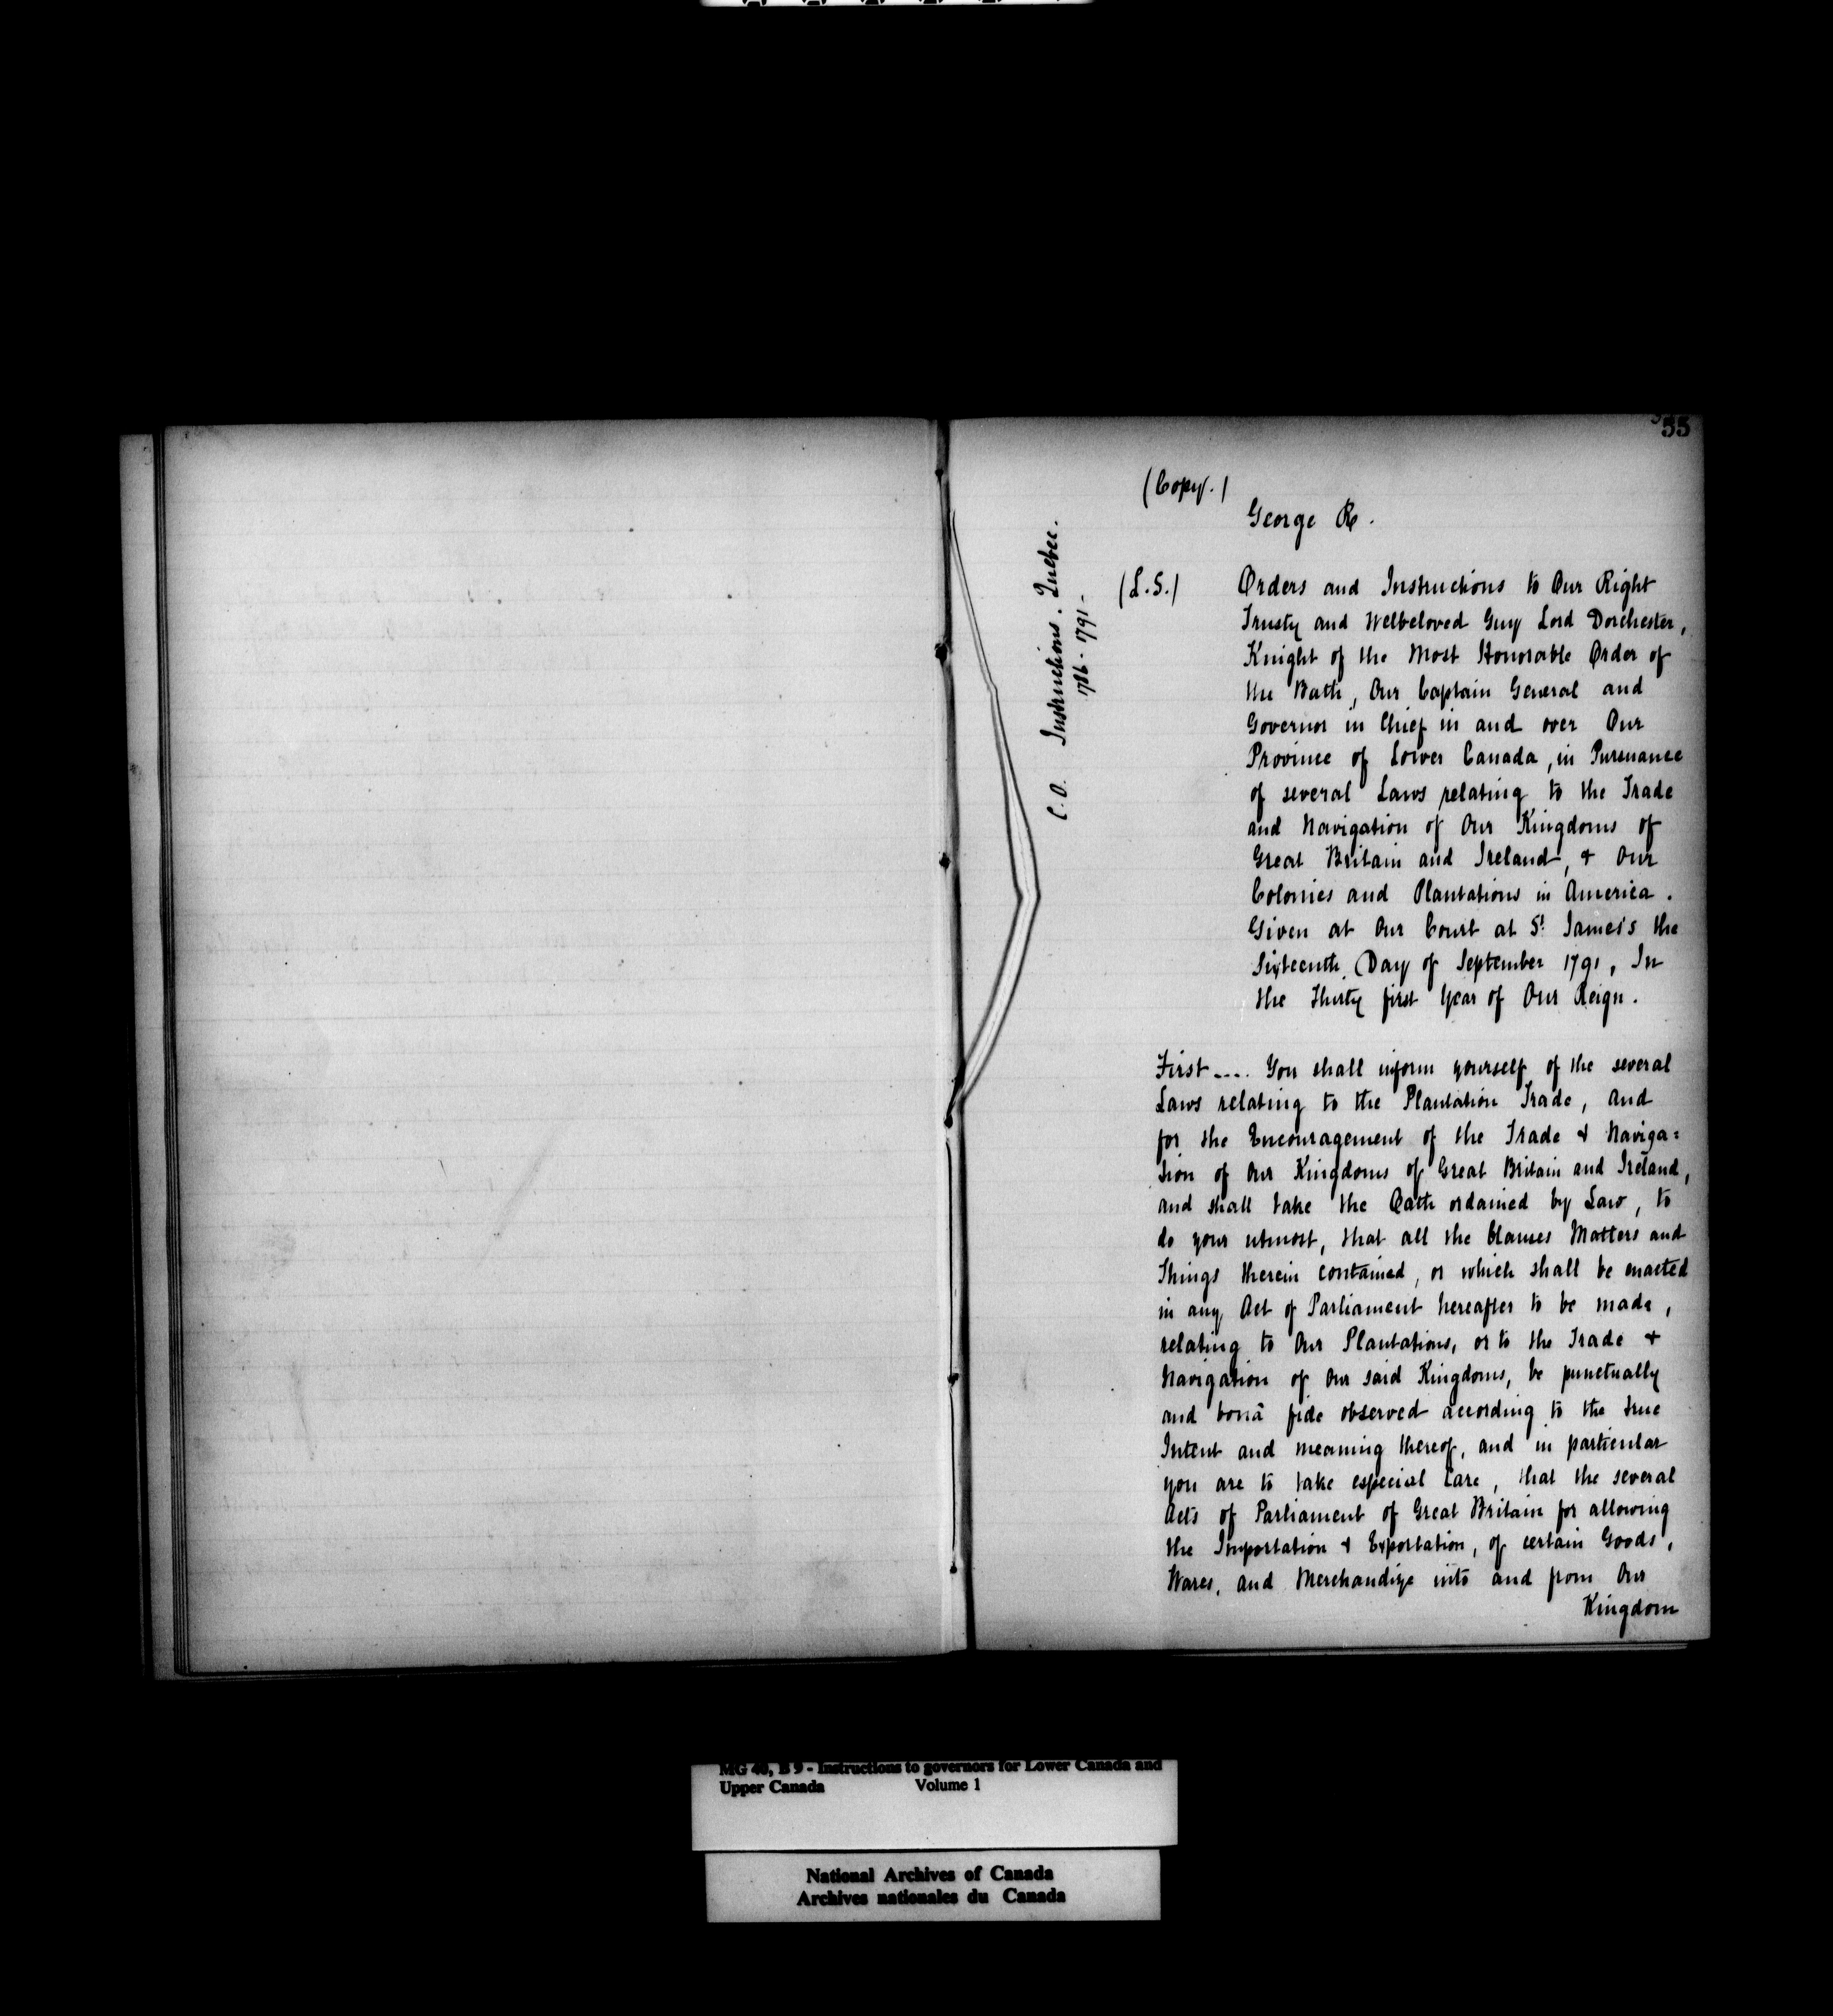 55
(Copy.)
George R.
C.O. Instructions. Quebec.
1786-1791-
(L.S.)
Orders and Instructions to Our Right
Trusty and Welbeloved Guy Lord Dorchester,
Knight of the Most Honorable Order of
the Bath, Our Captain General and
Governor in Chief in and over Our
Province of Lower Canada, in Pursuance
of several Laws relating to the Trade
and Navigation of Our Kingdoms of
Great Britain and Ireland, & Our
Colonies and Plantations in America.
Given at Our Court at St. James's the
Sixteenth Day of September 1791, In
the Thirty first Year of Our Reign.
First.... You shall inform yourself of the several
Laws relating to the Plantation Trade, and
for the Encouragement of the Trade & Naviga=
tion of Our Kingdoms of Great Britain and Ireland,
and shall take the Oath ordained by Law, to
do your utmost, that all the Clauses Matters and
Things therein contained, or which shall be enacted
in any Act of Parliament hereafter to be made,
relating to Our Plantations, or to the Trade &
Navigation of Our said Kingdoms, be punctually
and bonâ fide observed according to the true
Intent and meaning thereof, and in particular
you are to take especial Care, that the several
Acts of Parliament of Great Britain for allowing
the Importation & Exportation, of certain Goods,
Wares, and Merchandize into and from Our
Kingdom
MG 40, B 9 - Instructions to governors for Lower Canada and
Upper Canada Volume 1
National Archives of Canada
Archives nationales du Canada